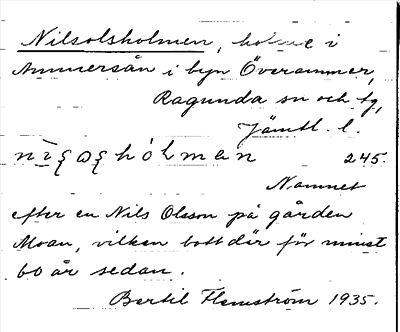 Nilsolsholmen, holme i
Ammersån i byn Överammer,
Ragunda sn och tg,
Jämtl. l.
245.
Namnet
efter en Nils Olsson på gården
Moan, vilken bott där för minst
60 år sedan.
Bertil Flemström 1935.